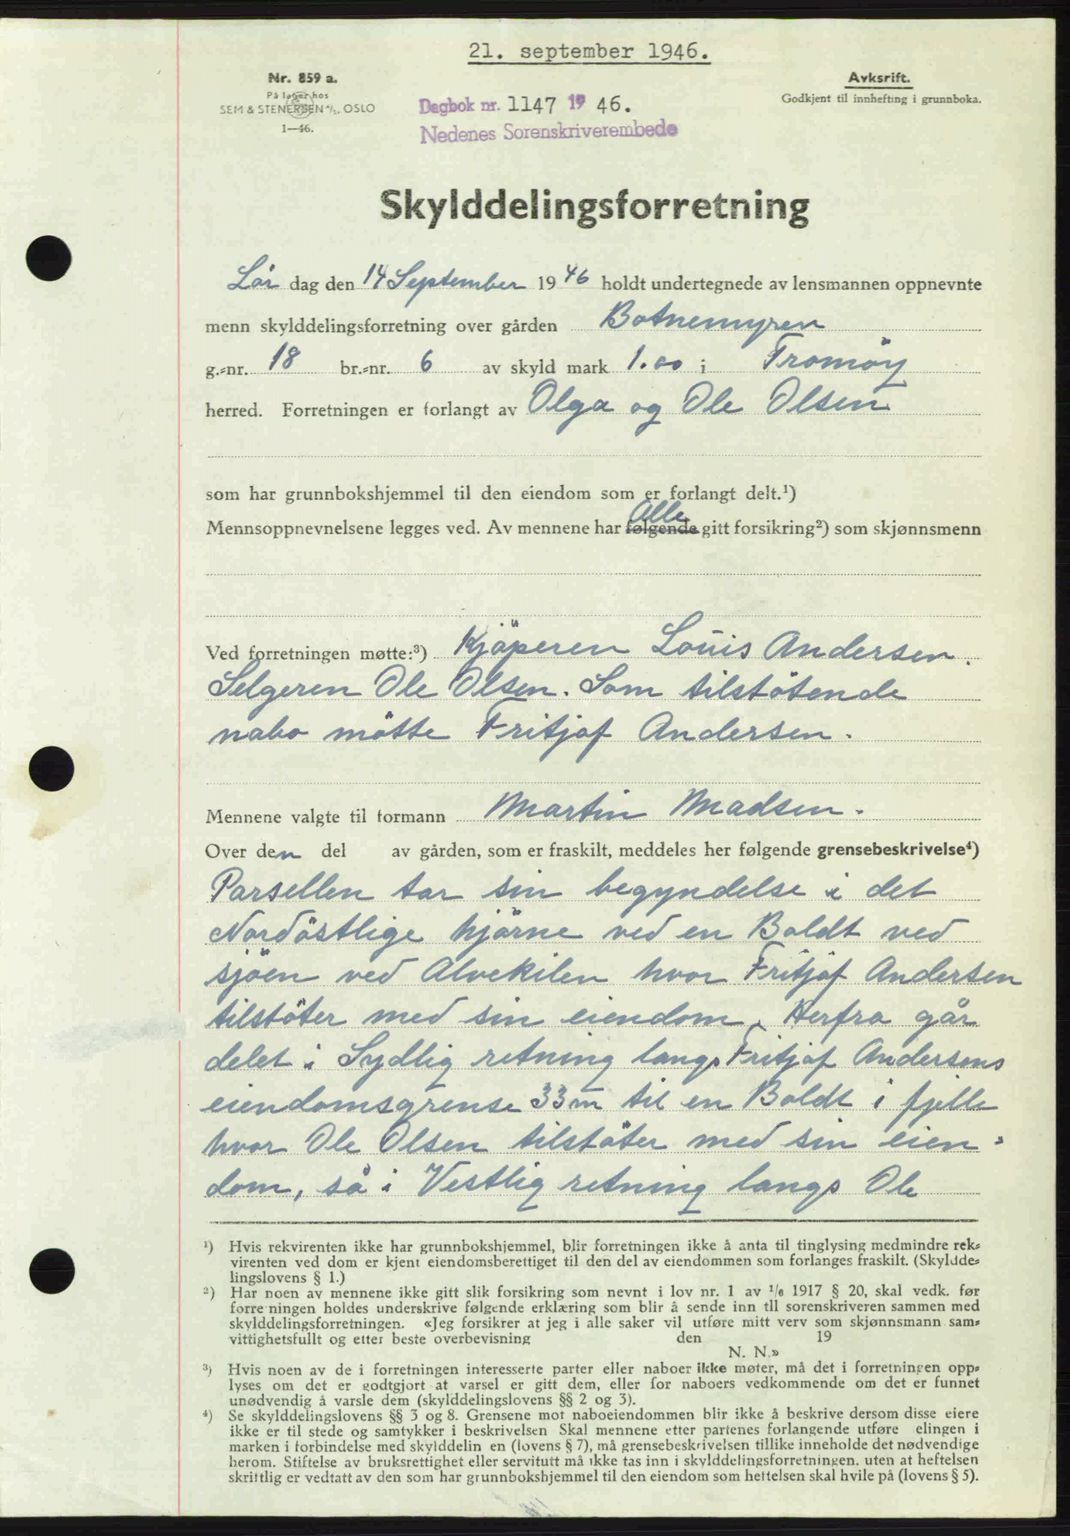 21. september 1946.
Nr. 859 a.
På lager hos
SEM & STENERSEN A/S, OSLO
1—46.
Dagbok nr. 1147 19 46.
Nedenes Sorenskriverembede
Avskrift.
Godkjent til innhefting i grunnboka.
Skylddelingsforretning
Lör dag den 14 September 1946 holdt undertegnede av lensmannen oppnevnte
menn skylddelingsforretning over gården Botnemyren
g.-nr. 18 br.-nr. 6 av skyld mark 1.00 i Tromöy
herred. Forretningen er forlangt av Olga og Ole Olsen
som har grunnbokshjemmel til den eiendom som er forlangt delt.¹)
Alle
Mennsoppnevnelsene legges ved. Av mennene har følgende gitt forsikring²) som skjønnsmenn
Ved forretningen møtte:³) Kjöperen Louis Andersen.
Selgeren Ole Olsen. Som tilstötende
nabo mötte Fritjof Andersen.
Mennene valgte til formann Martin Madsen.
Over den del av gården, som er fraskilt, meddeles her følgende grensebeskrivelse⁴)
Parsellen tar sin begyndelse i det
Nordöstlige hjörne ved en Boldt ved
sjöen ved Alvekilen hvor Fritjof Andersen
tilstöter med sin eiendom. Herfra går
delet i Sydlig retning langs Fritjof Andersens
eiendomsgrense 33 m til en Boldt i fjelle
hvor Ole Olsen tilstöter med sin eien-
dom, så i Vestlig retning langs Ole
¹) Hvis rekvirenten ikke har grunnbokshjemmel, blir forretningen ikke å anta til tinglysing medmindre rek-
virenten ved dom er kjent eiendomsberettiget til den del av eiendommen som forlanges fraskilt. (Skyldde-
lingslovens § 1.)
²) Har noen av mennene ikke gitt slik forsikring som nevnt i lov nr. 1 av 1/6 1917 § 20, skal vedk. før
forretningen holdes underskrive følgende erklæring som blir å sende inn til sorenskriveren sammen med
skylddelingsforretningen. «Jeg forsikrer at jeg i alle saker vil utføre mitt verv som skjønnsmann sam-
vittighetsfullt og etter beste overbevisning den 19
N. N.»
³) Hvis noen av de i forretningen interesserte parter eller naboer ikke møter, må det i forretningen opp-
lyses om det er godtgjort at varsel er gitt dem, eller for naboers vedkommende om det er funnet
unødvendig å varsle dem (skylddelingslovens §§ 2 og 3).
⁴) Se skylddelingslovens §§ 3 og 8. Grensene mot naboeiendommen blir ikke å beskrive dersom disse eiere
ikke er til stede og samtykker i beskrivelsen Skal mennene etter partenes forlangende utføre elingen i
marken i forbindelse med skylddelin en (lovens § 7), må grensebeskrivelsen tillike inneholde det nødvendige
herom. Stiftelse av bruksrettighet eller servitutt må ikke tas inn i skylddelingsforretningen, uten at heftelsen
skriftlig er vedtatt av den som har grunnbokshjemmel til den eiendom som heftelsen skal hvile på (lovens § 5).